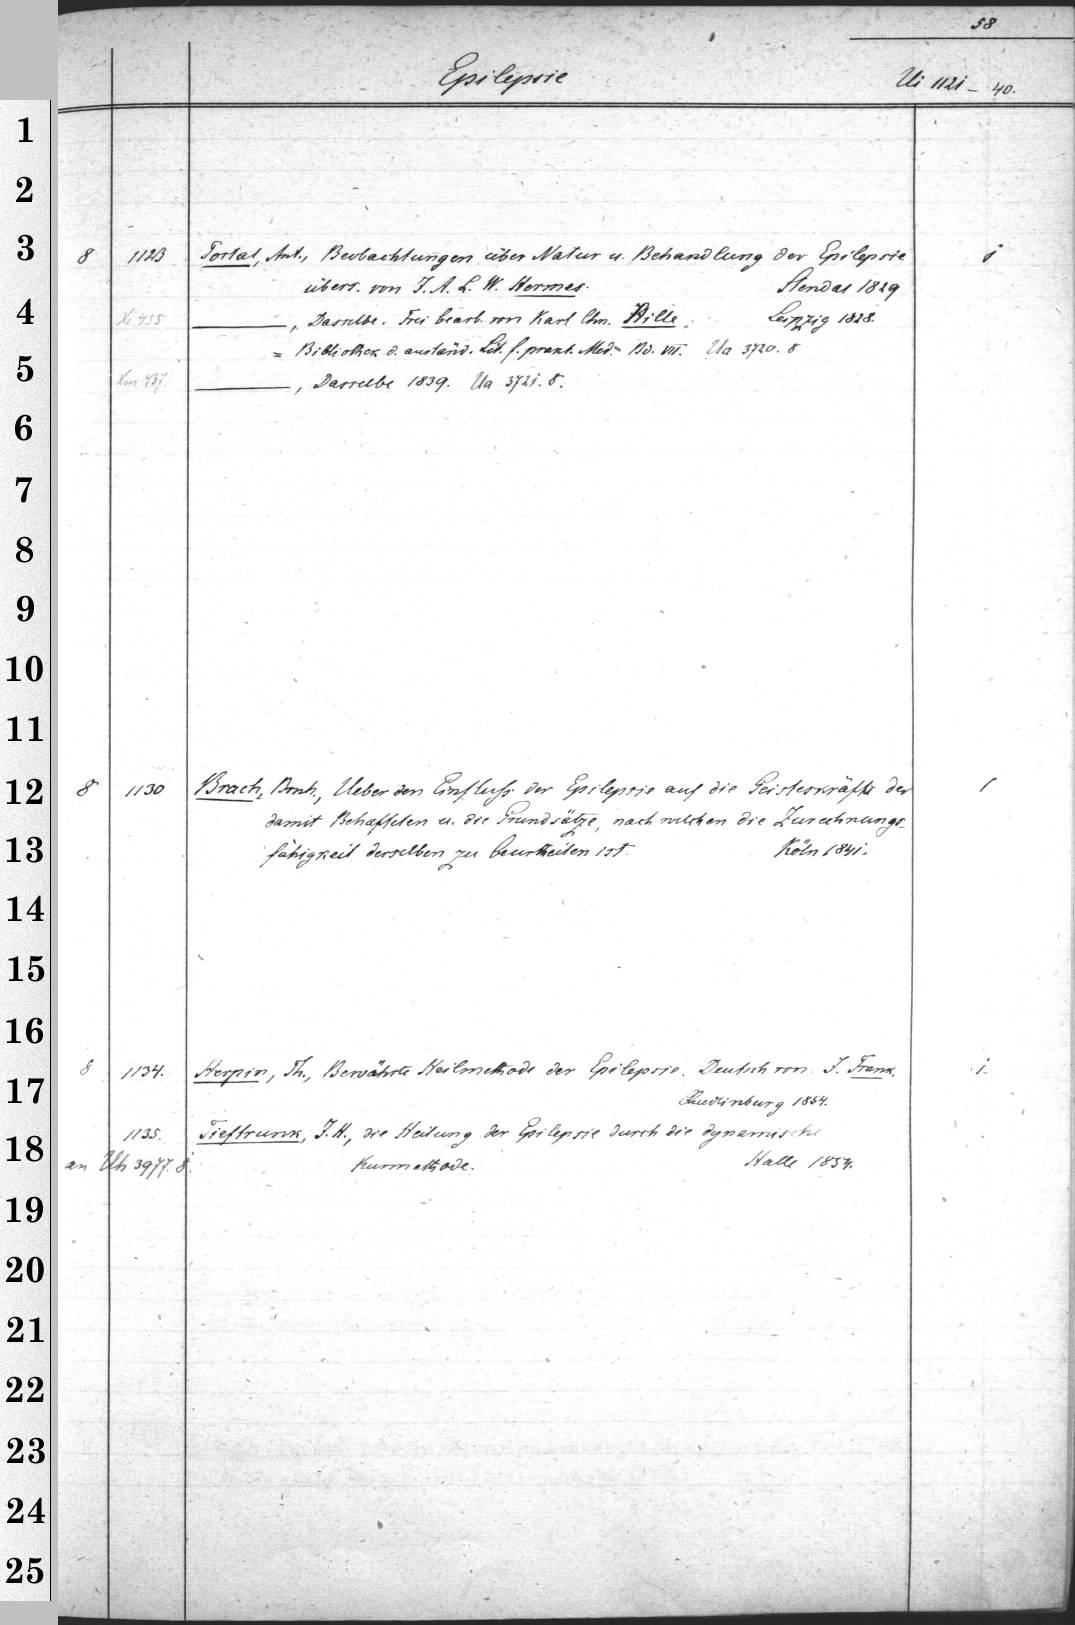 58
Epilepsie
Ui 1121 - 40.
1
2
3
8 1123 Portal, Ant., Beobachtungen über Natur u. Behandlung der Epilepsie 1
übers. von J. A. L. W. Hermes. Stendal 1829
4
———, Dasselbe. Frei bearb. von Karl Chn. Hille. Leipzig 1828.
= Bibliothek d. ausländ. Lit. f. prakt. Med. Bd. VII. Ua 3720. 8
5
Xm 437. ———, Dasselbe 1839. Ua 3721. 8.
6
7
8
9
10
11
12
8 1130 Brach, Bernh., Ueber den Einfluss der Epilepsie auf die Geisteskräfte der 1
damit Behafteten u. die Grundsätze, nach welchen die Zurechnungs-
13
fähigkeit derselben zu beurtheilen ist. Köln 1841.
14
15
16
8 1134. Herpin, Th., Bewährte Heilmethode der Epilepsie. Deutsch von J. Frank. 1.
17
Quedlinburg 1854.
1135. Tieftrunk, J. H., die Heilung der Epilepsie durch die dynamische
18
an Uh 3977. 8. Kurmethode. Halle 1854.
19
20
21
22
23
24
25